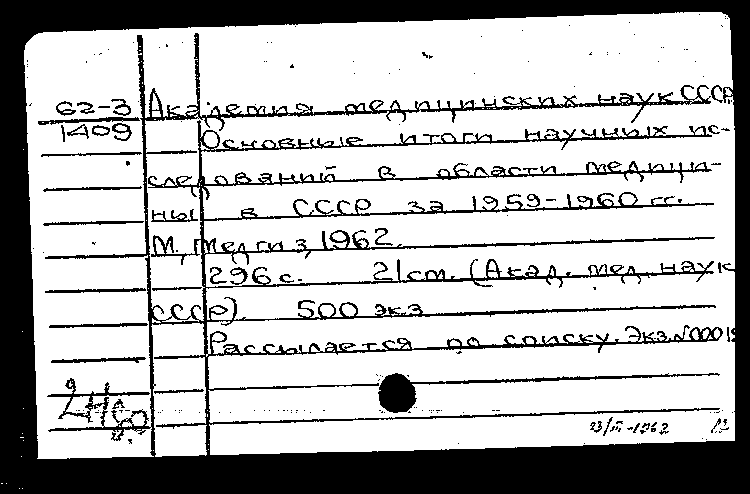 62-3 Академия медицинских наук СССР
1409 Основные итоги научных ис-
следований в области медици-
ны в СССР за 1959-1960 гг.
М., Медгиз, 1962.
296 с. 21 cm. (Акад. мед. наук
СССР). 500 экз
Рассылается по списку. Экз. №00019
23/III-1962